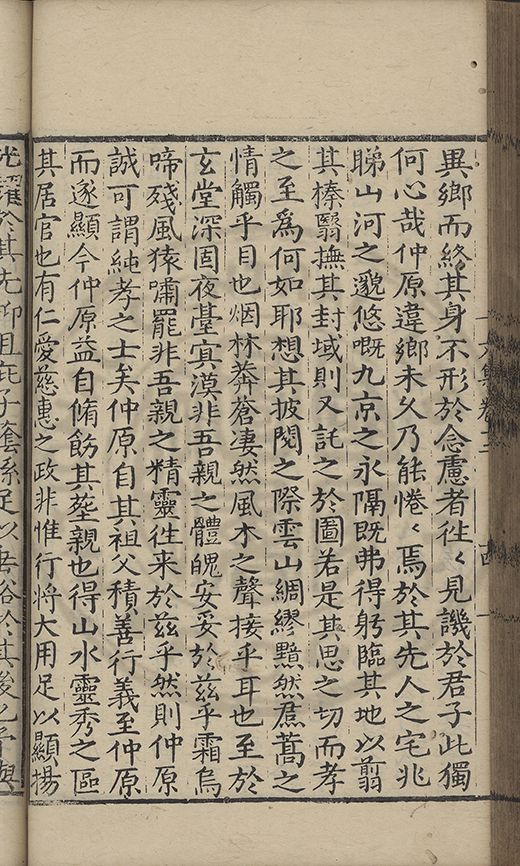 異鄉而終其身不形於念慮者徃〻見譏於君子此獨
何心哉仲原違鄉未久乃能惓〻焉於其先人之宅兆
睇山河之邈悠嘅九京之永隔既弗得躬臨其地以翦
其榛翳撫其封域則又託之於圖若是其思之切而孝
之至爲何如耶想其披閱之際雲山綢繆黯然焄蒿之
情觸乎目也烟林莽蒼凄然風木之聲接乎耳也至於
玄堂深固夜臺㝠漠非吾親之體魄安妥於兹乎霜烏
啼殘風猿嘯罷非吾親之精靈徃来於兹乎然則仲原
誠可謂純孝之士矣仲原自其祖父積善行義至仲原
而遂顯今仲原益自脩飭其塟親也得山水靈秀之區
其居官也有仁愛慈惠之政非惟行將大用足以顯揚
光耀於其先抑且庇子蔭孫足以垂裕於其後也予與